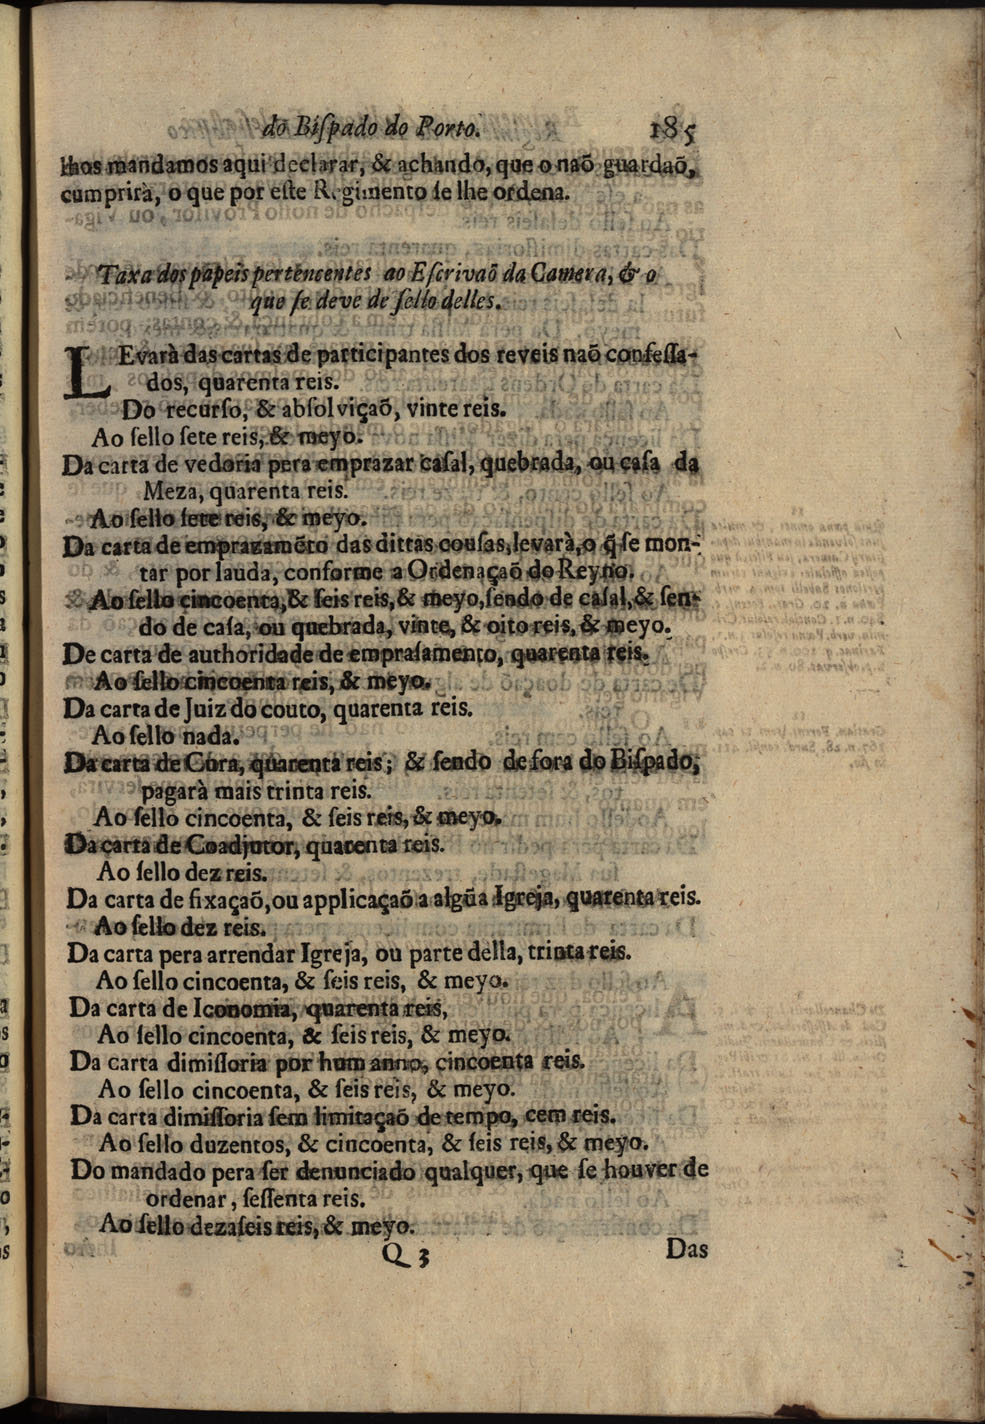 do Biſpado do Porto. 185
lhos mandamos aqui declarar, & achando, que o naõ guardaõ,
cumprirà, o que por eſte Regimento ſe lhe ordena.
Taxa dos papeis pertencentes ao Eſcrivaõ da Camera, & o
que ſe deve de ſello delles.
LEvarà das cartas de participantes dos reveis naõ confeſſa-
dos, quarenta reis.
Do recurſo, & abſolviçaõ, vinte reis.
Ao ſello ſete reis, & meyo.
Da carta de vedoria pera emprazar caſal, quebrada, ou caſa da
Meza, quarenta reis.
Ao ſello ſete reis, & meyo.
Da carta de emprazamẽto das dittas couſas, levarà, o q̃ ſe mon-
tar por lauda, conforme a Ordenaçaõ do Reyno.
Ao ſello cincoenta, & ſeis reis, & meyo, ſendo de caſal, & ſen-
do de caſa, ou quebrada, vinte, & oito reis, & meyo.
De carta de authoridade de empraſamento, quarenta reis.
Ao ſello cincoenta reis, & meyo.
Da carta de Juiz do couto, quarenta reis.
Ao ſello nada.
Da carta de Cura, quarenta reis; & ſendo de fora do Biſpado,
pagarà mais trinta reis.
Ao ſello cincoenta, & ſeis reis, & meyo.
Da carta de Coadjutor, quarenta reis.
Ao ſello dez reis.
Da carta de fixaçaõ, ou applicaçaõ a algũa Igreja, quarenta reis.
Ao ſello dez reis.
Da carta pera arrendar Igreja, ou parte della, trinta reis.
Ao ſello cincoenta, & ſeis reis, & meyo.
Da carta de Iconomia, quarenta reis,
Ao ſello cincoenta, & ſeis reis, & meyo.
Da carta dimiſſoria por hum anno, cincoenta reis.
Ao ſello cincoenta, & ſeis reis, & meyo.
Da carta dimiſſoria ſem limitaçaõ de tempo, cem reis.
Ao ſello duzentos, & cincoenta, & ſeis reis, & meyo.
Do mandado pera ſer denunciado qualquer, que ſe houver de
ordenar, ſeſſenta reis.
Ao ſello dezaſeis reis, & meyo.
Q 3 Das